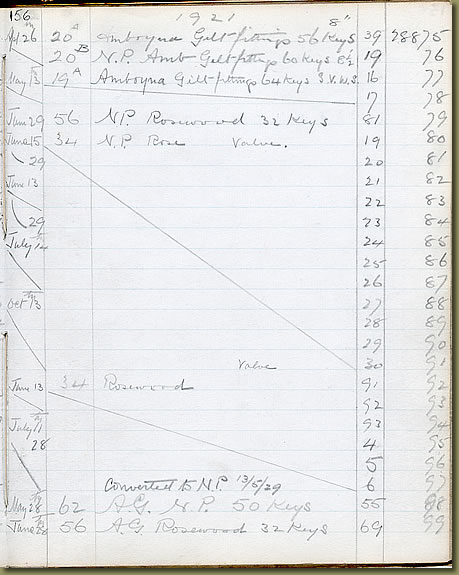 156 1921
Apl 26 20 A Amboyna Gilt fittings 56 Keys 8" 39 28875
20 B N.P. Amb Gilt fittings 60 Keys 8½ 19 76
May 13 19 A Amboyna Gilt fittings 64 Keys S.V.W.S. 16 77
17 78
June 29 56 NP. Rosewood 32 Keys 81 79
June 15 34 N.P. Rose Valve. 19 80
29 20 81
June 13 21 82
22 83
29 23 84
July 14 24 85
25 86
26 87
Oct 13 27 88
28 89
29 90
Valve 30 91
June 13 34 Rosewood 91 92
92 93
July 11 93 94
28 4 95
5 96
Converted to N.P. 13/5/29 6 97
May 28 62 A.G. N.P. 50 Keys 55 98
June 28 56 A.G. Rosewood 32 Keys 69 99